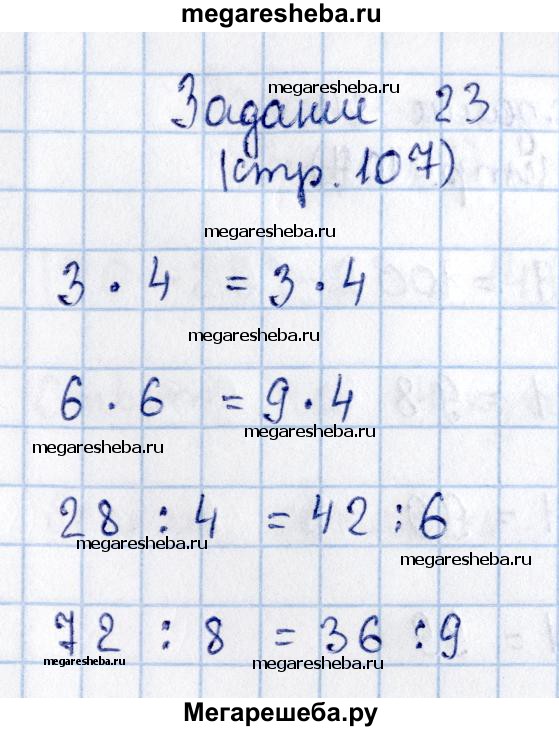 megaresheba.ru
megaresheba.ru
Задание 23
(стр. 107)
megaresheba.ru
3 · 4 = 3 · 4
megaresheba.ru
6 · 6 = 9 · 4
megaresheba.ru
megaresheba.ru
28 : 4 = 42 : 6
megaresheba.ru
megaresheba.ru
72 : 8 = 36 : 9
megaresheba.ru
megaresheba.ru
Мегарешеба.ру